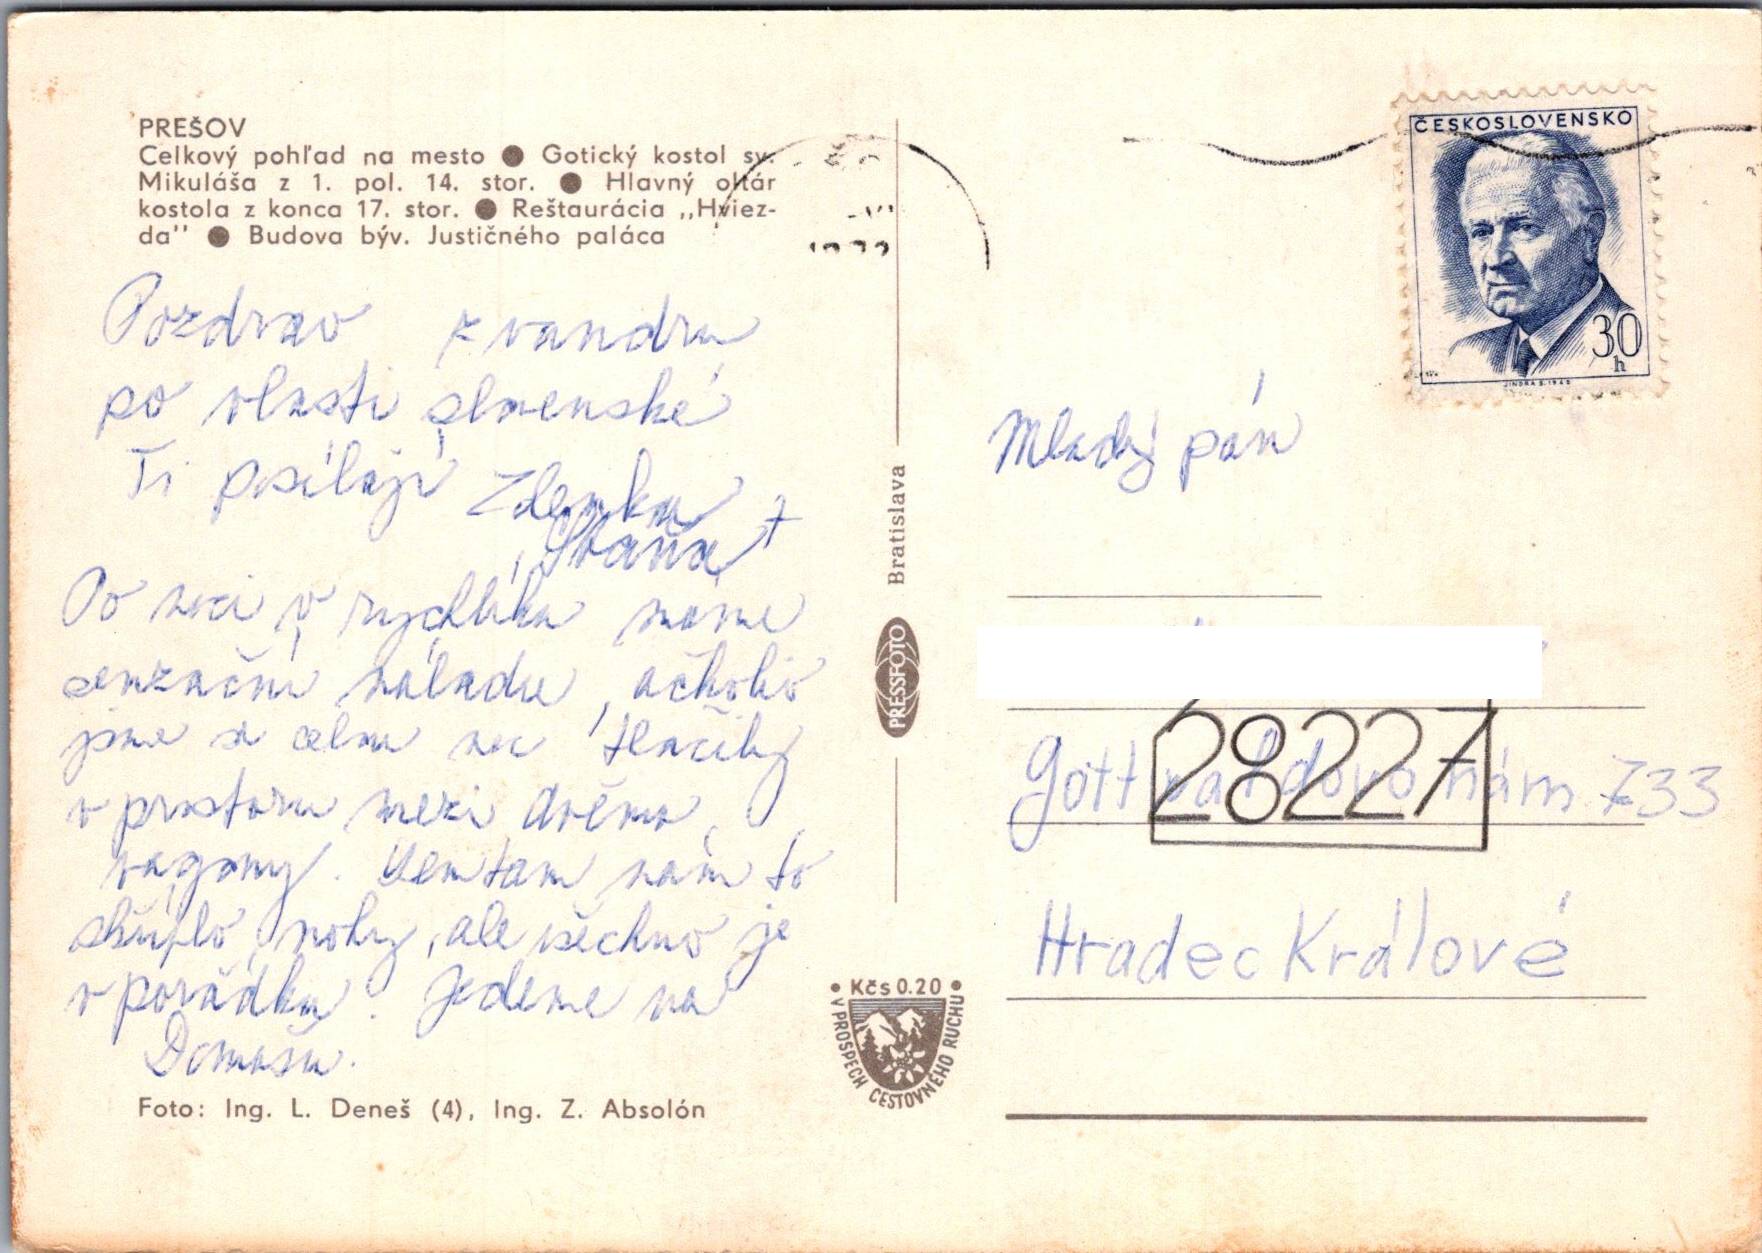 PREŠOV
Celkový pohľad na mesto ● Gotický kostol sv.
Mikuláša z 1. pol. 14. stor. ● Hlavný oltár
kostola z konca 17. stor. ● Reštaurácia „Hviez-
da" ● Budova býv. Justičného paláca
Pozdrav z vandru
po vlasti slovenské
Ti posílají Zdenka +
Staňa
Po noci v rychlíku máme
senzační náladu, ačkoliv
jsme se celou noc tlačily
v prostoru mezi dvěma
vagony. Jen tam nám to
nohy, ale všechno je
v pořádku. Jedeme na
Domašu.
Foto: Ing. L. Deneš (4), Ing. Z. Absolón
Bratislava
PRESSFOTO
• Kčs 0.20 •
V PROSPECH CESTOVNÉHO RUCHU
ČESKOSLOVENSKO
30
h
JINDRA S. 1968
Mladý pán
28227
Gottwaldovo nám 733
Hradec Králové